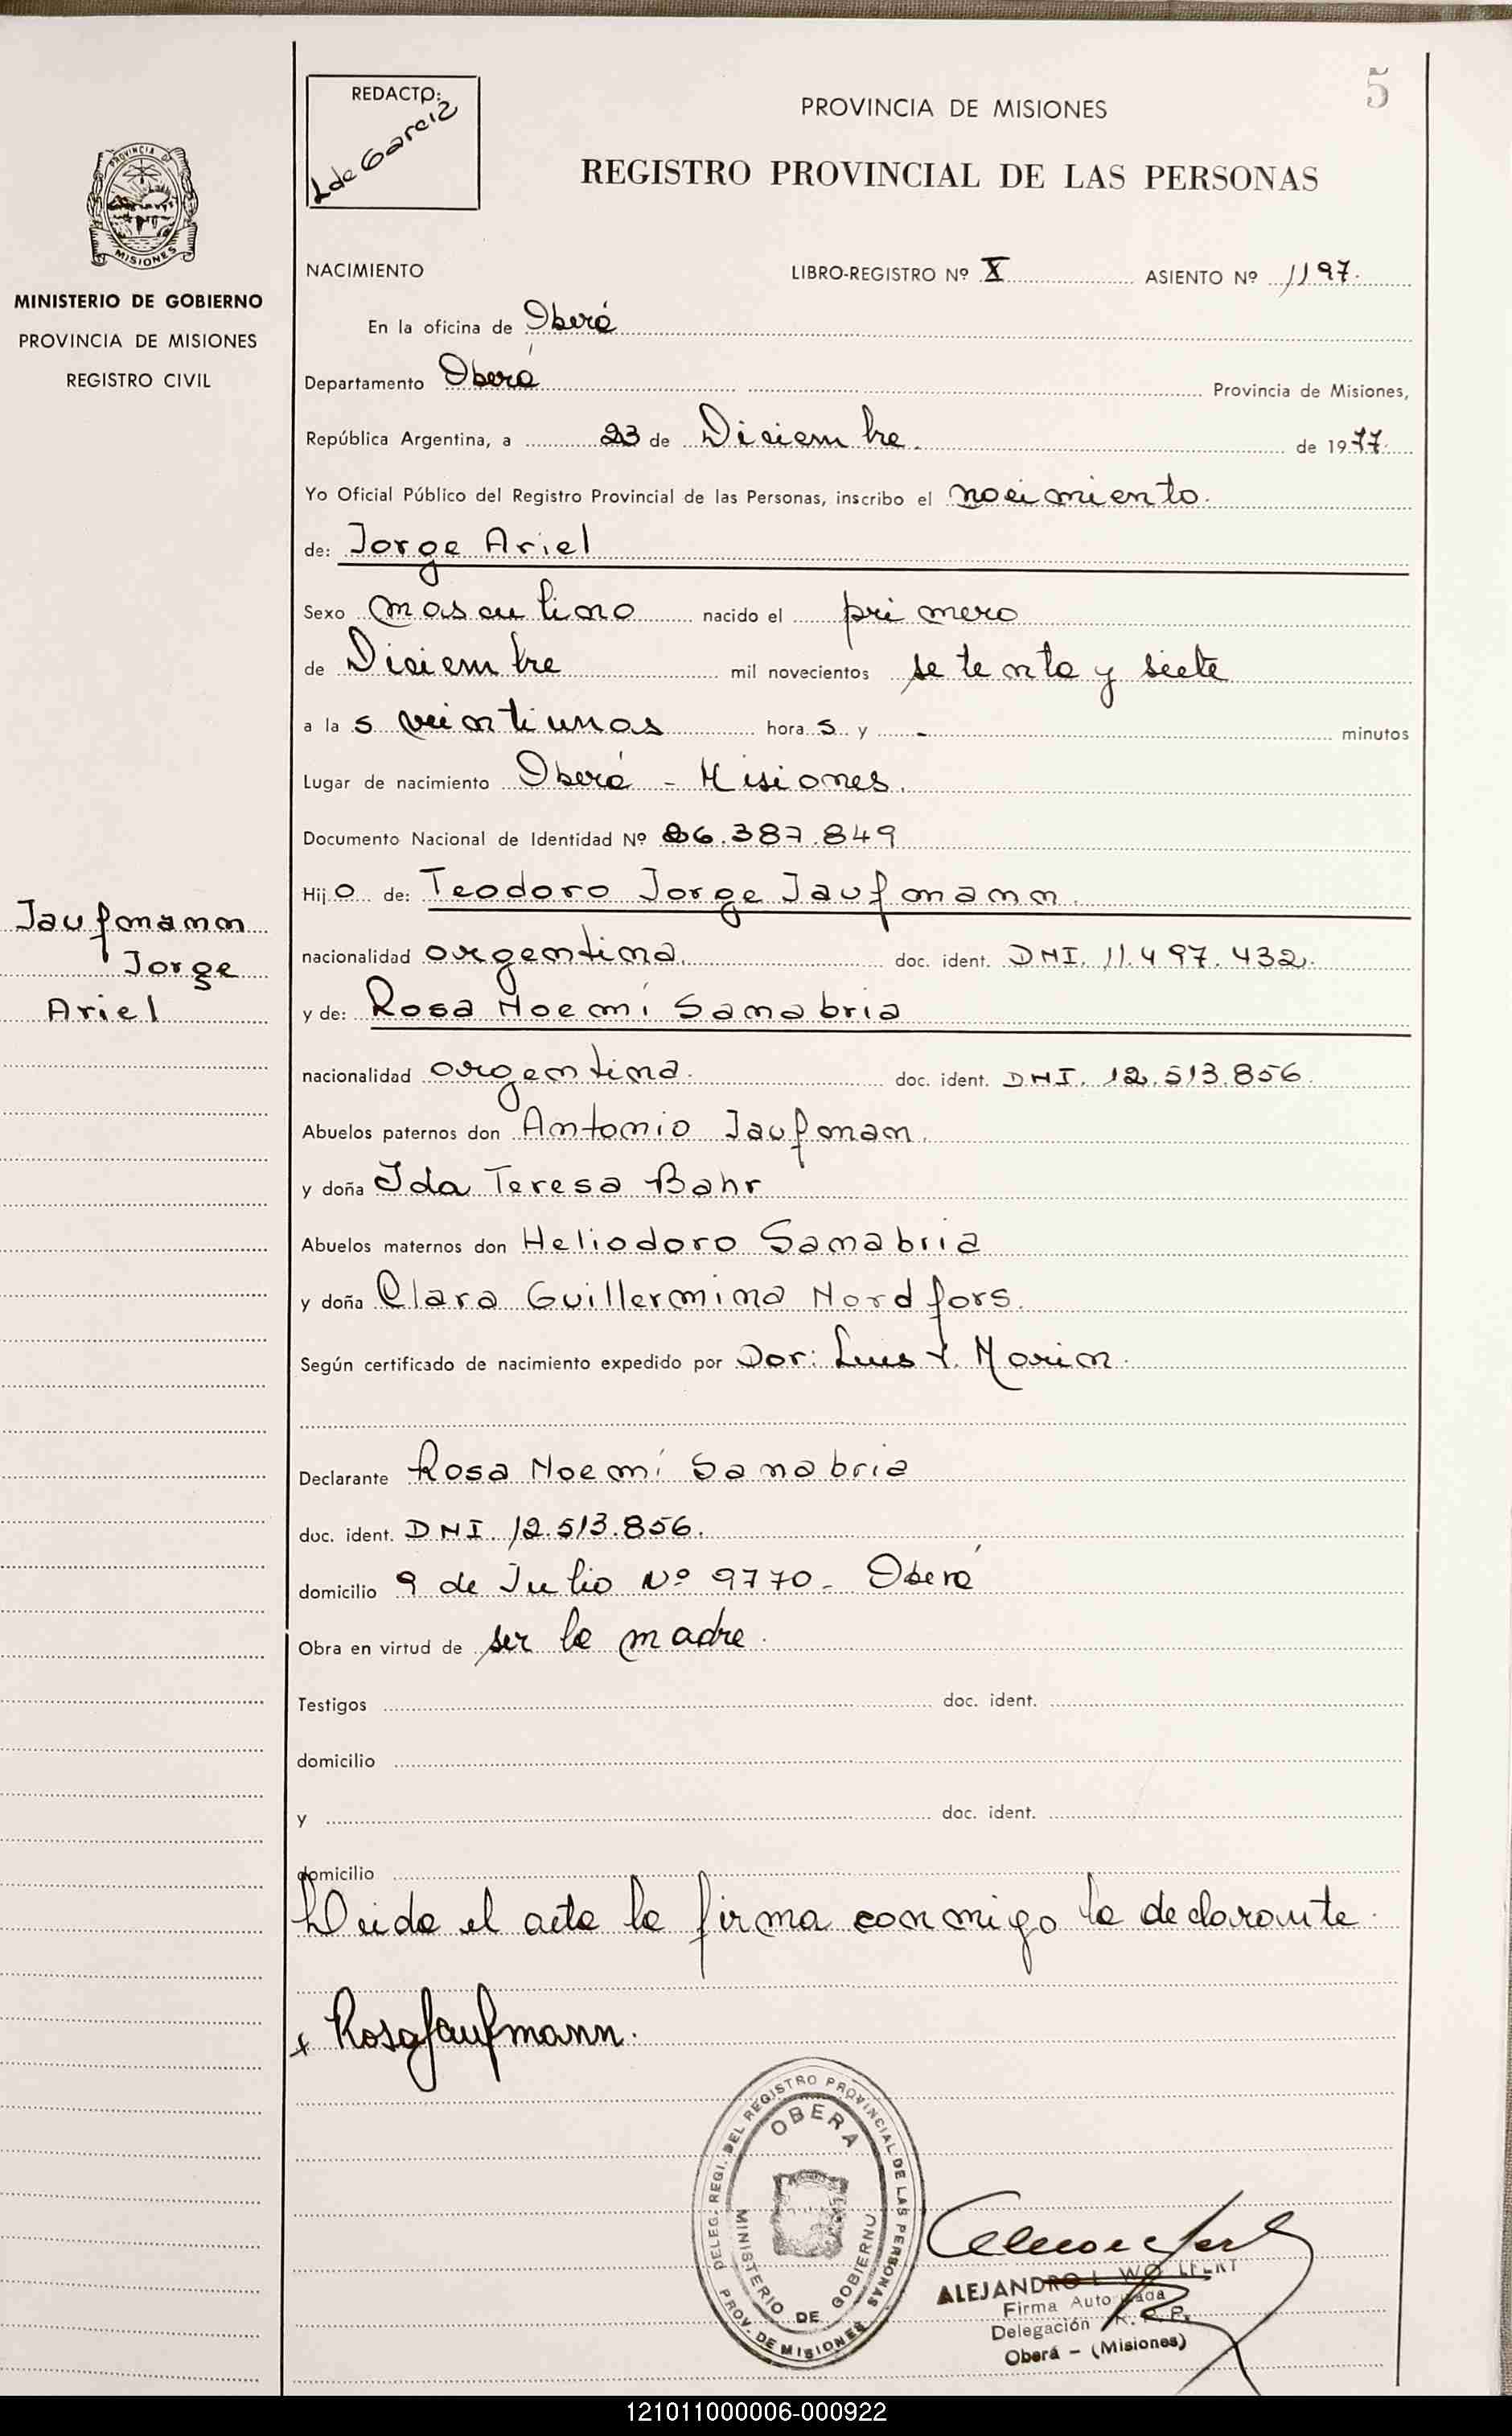 5
REDACTO:
L de Garcia
PROVINCIA DE MISIONES
REGISTRO PROVINCIAL DE LAS PERSONAS
PROVINCIA DE
MISIONES
MINISTERIO DE GOBIERNO
PROVINCIA DE MISIONES
REGISTRO CIVIL
NACIMIENTO LIBRO-REGISTRO Nº X ASIENTO Nº 1197.
En la oficina de Oberá
Departamento Oberá Provincia de Misiones,
República Argentina, a 23 de Diciembre. de 1977.
Yo Oficial Público del Registro Provincial de las Personas, inscribo el nacimiento.
de: Jorge Ariel
Sexo masculino nacido el primero
de Diciembre mil novecientos setenta y siete
a las veintiunas horas y - minutos
Lugar de nacimiento Oberá - Misiones.
Documento Nacional de Identidad Nº 26.387.849
Hijo de: Teodoro Jorge Jaufmann.
Jaufmann
Jorge
Ariel
nacionalidad argentina. doc. ident. DNI. 11.497.432.
y de: Rosa Noemí Sanabria
nacionalidad argentina. doc. ident. DNI. 12.513.856.
Abuelos paternos don Antonio Jaufman.
y doña Ida Teresa Bahr
Abuelos maternos don Heliodoro Sanabria
y doña Clara Guillermina Nordfors.
Según certificado de nacimiento expedido por Dor: Luis Marin.
Declarante Rosa Noemí Sanabria
doc. ident. DNI. 12.513.856.
domicilio 9 de Julio Nº 9770. Oberá
Obra en virtud de ser la madre.
Testigos doc. ident.
domicilio
y doc. ident.
domicilio
Leida el acta la firma conmigo la declarante.
x Rosa Jaufmann.
DELEG. REGI. DEL REGISTRO PROVINCIAL DE LAS PERSONAS
OBERA
MINISTERIO DE GOBIERNO
PROV. DE MISIONES
ALEJANDRO L. WOLFERT
Firma Autorizada
Delegación R. P. P.
Oberá - (Misiones)
121011000006-000922